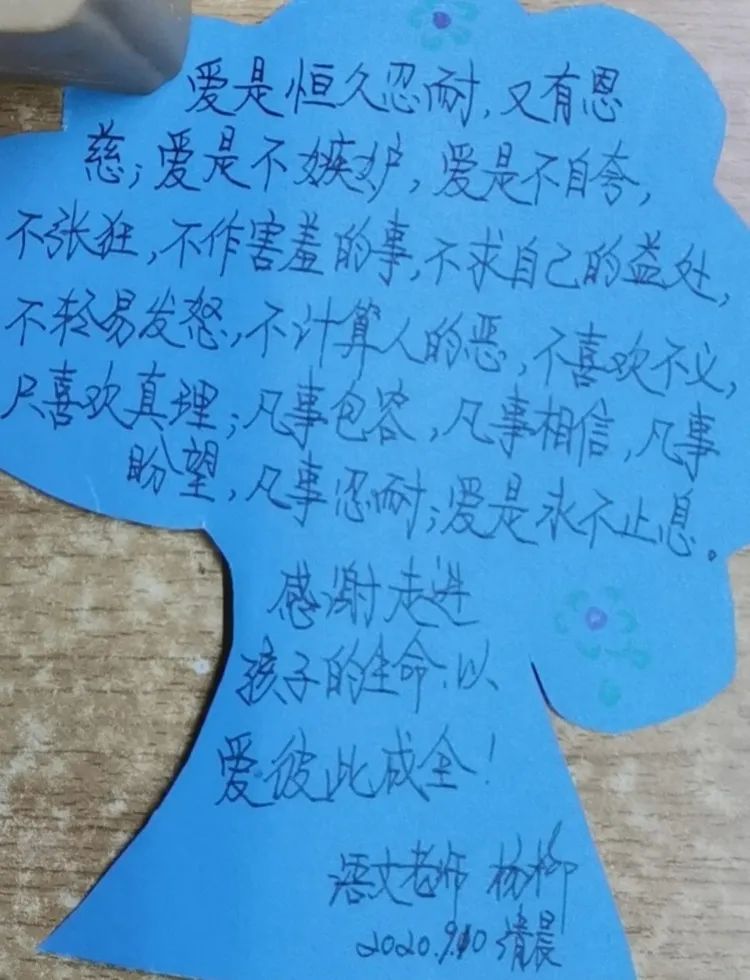 爱是恒久忍耐,又有恩
慈;爱是不嫉妒,爱是不自夸,
不张狂,不作害羞的事,不求自己的益处,
不轻易发怒,不计算人的恶,不喜欢不义,
只喜欢真理;凡事包容,凡事相信,凡事
盼望,凡事忍耐;爱是永不止息。
感谢走进
孩子的生命,以
爱彼此成全!
语文老师 杨柳
2020.9.10 清晨